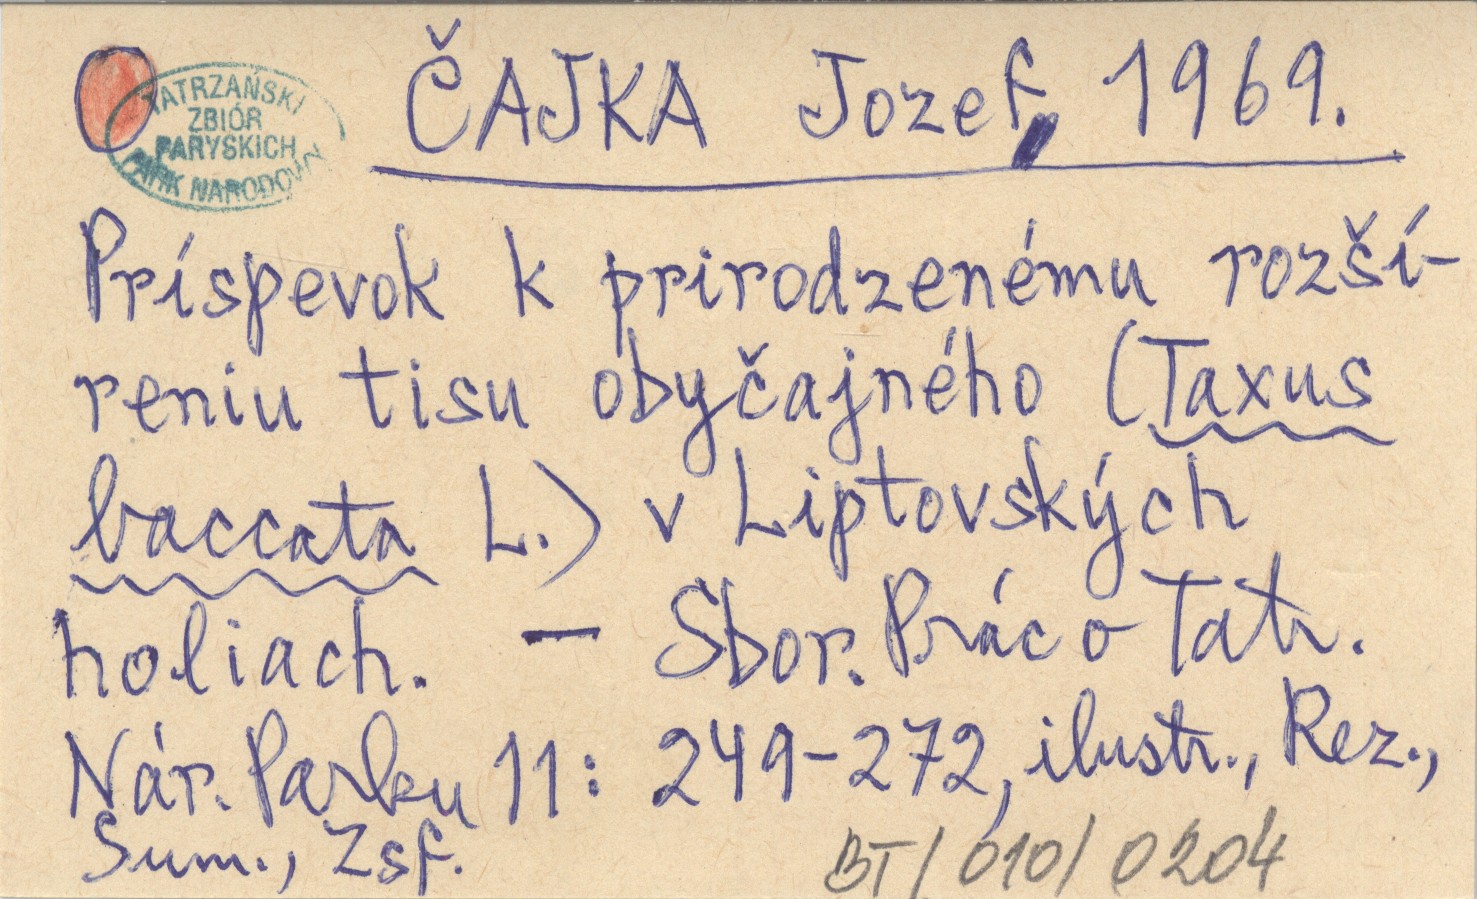 ČAJKA Jozef, 1969.
TATRZAŃSKI
ZBIÓR
PARYSKICH
PARK NARODOWY
Príspevok k prirodzenému rozší-
reniu tisu obyčajného (Taxus
baccata L.) v Liptovských
holiach. — Sbor. Prác o Tatr.
Nár. Parku 11: 249-272, ilustr., Rez.,
Sum., Zsf.
BT/010/0204